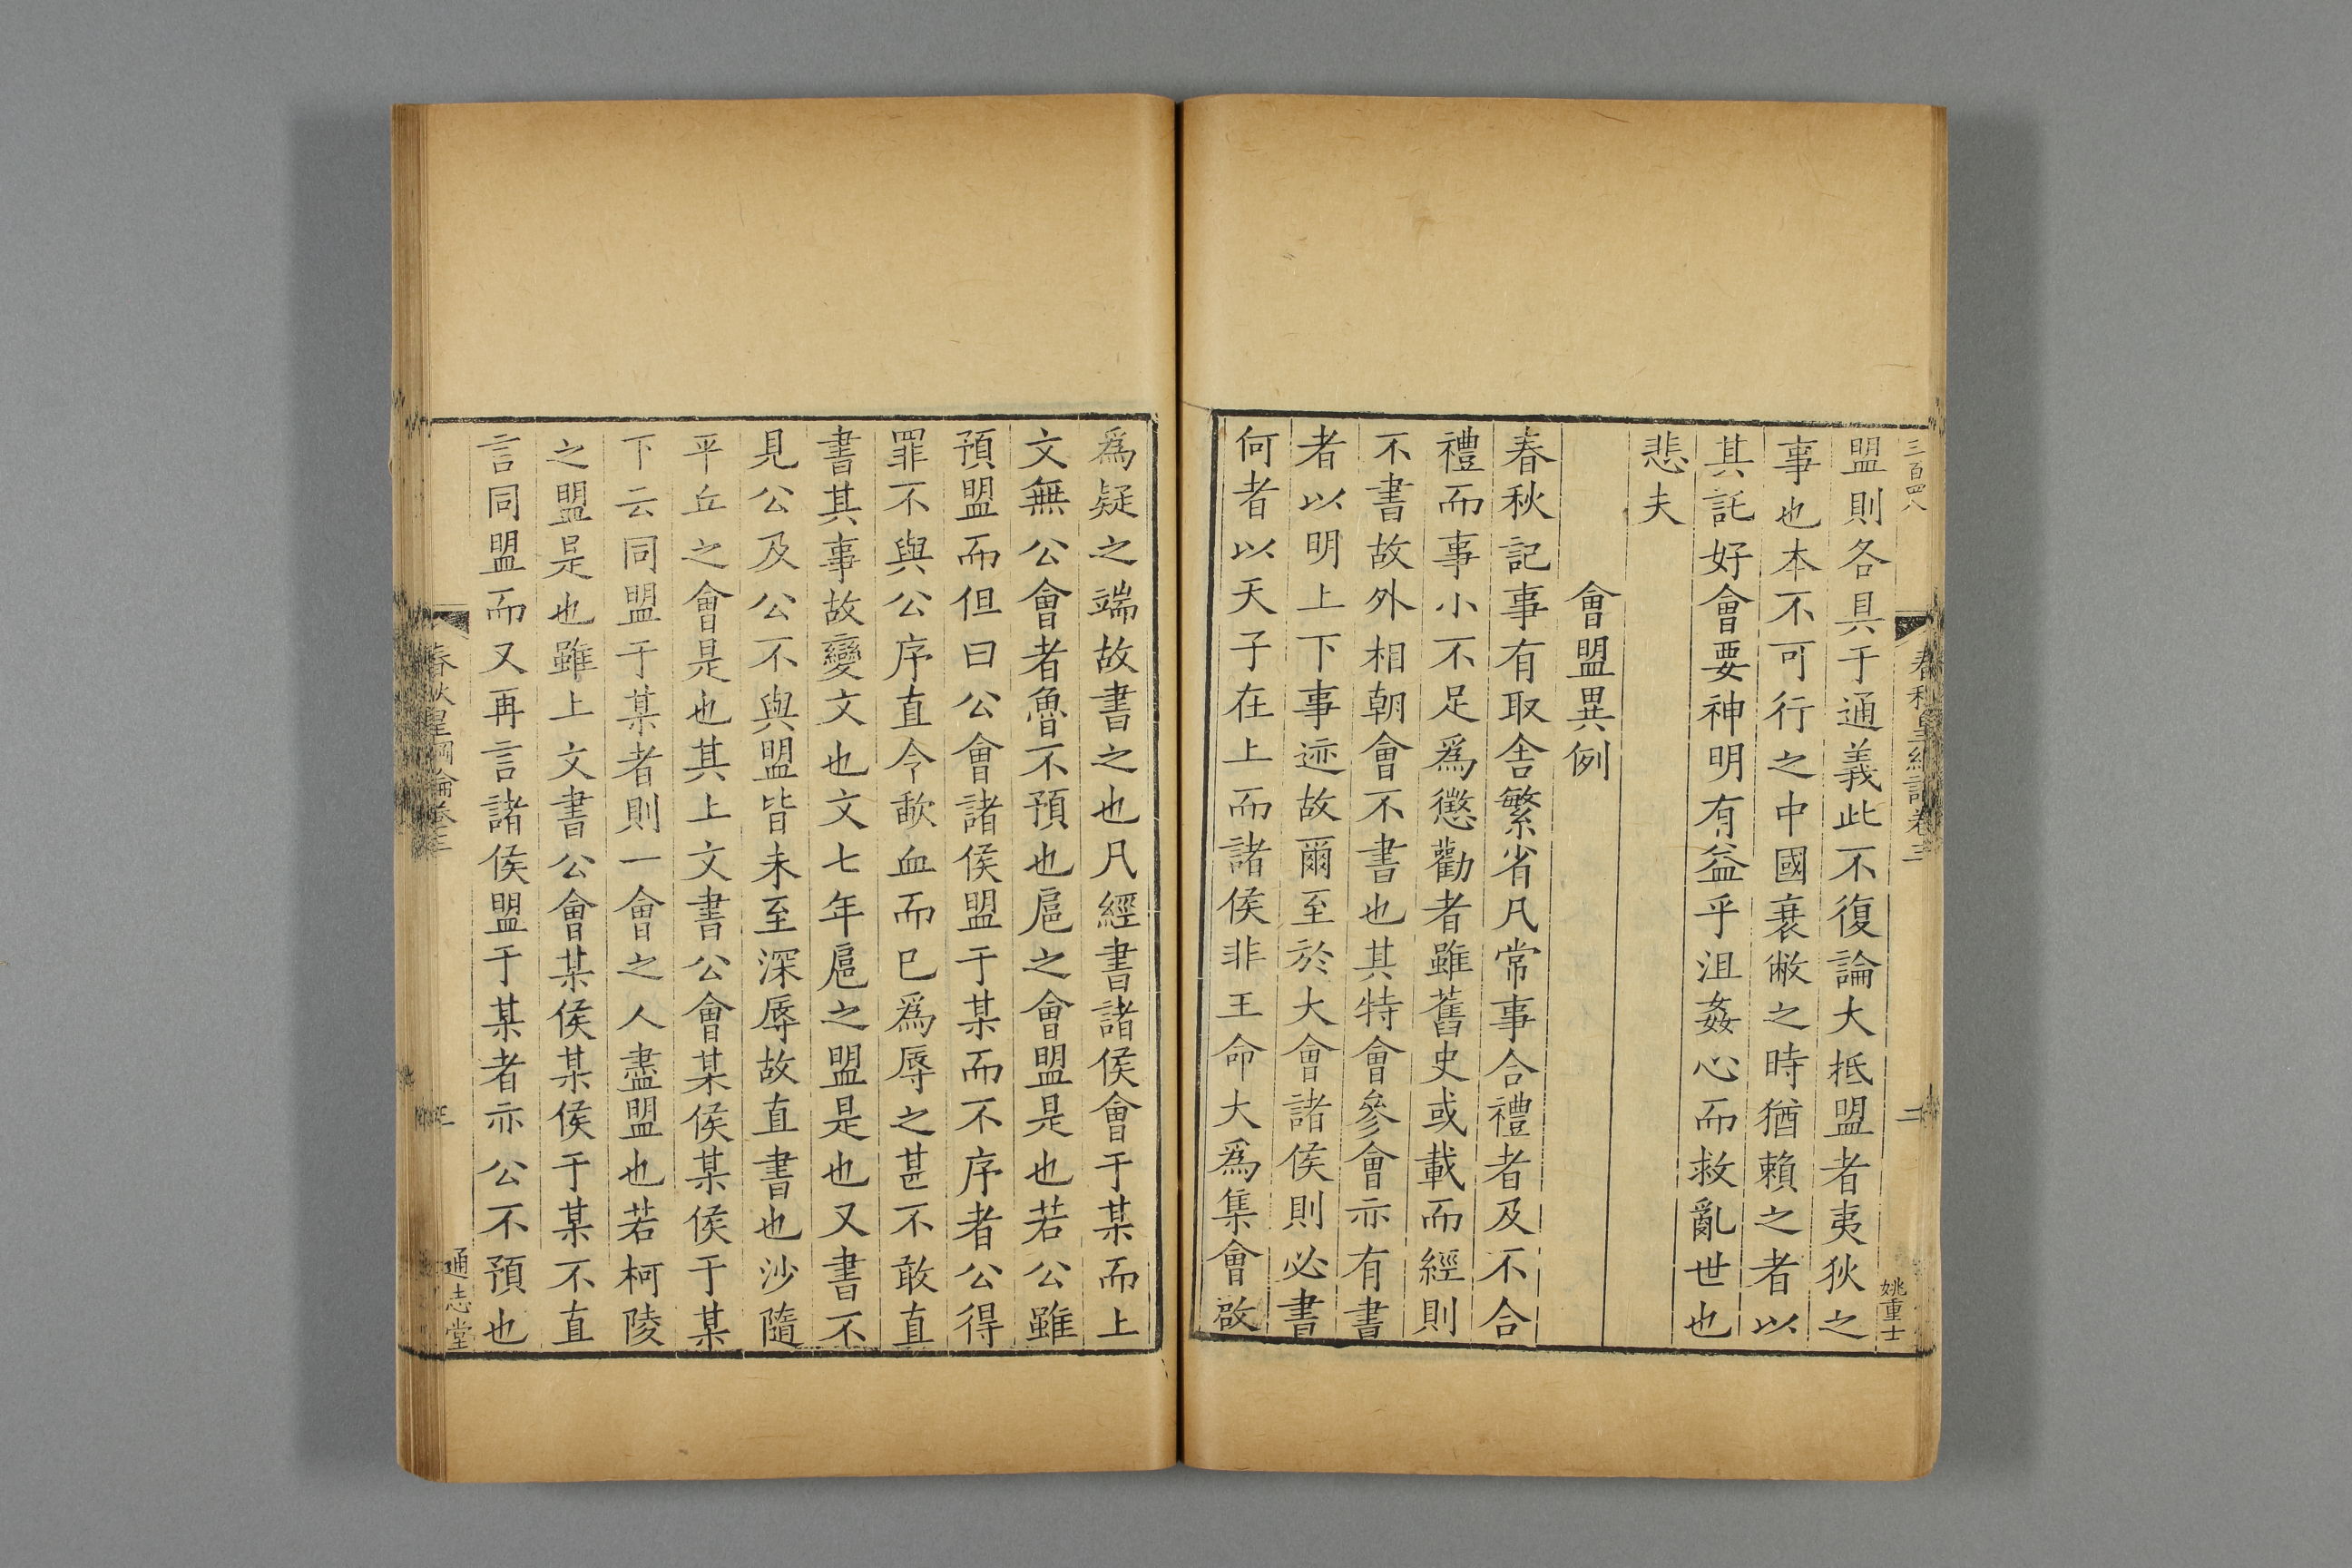 三百四八
春秋皇綱論卷三
二
姚重士
盟則各具于通義此不復論大抵盟者夷狄之
事也本不可行之中國衰敝之時猶賴之者以
其託好會要神明有益乎沮姦心而救亂世也
悲夫
會盟異例
春秋記事有取舍繁省凡常事合禮者及不合
禮而事小不足爲懲勸者雖舊史或載而經則
不書故外相朝會不書也其特會參會亦有書
者以明上下事迹故爾至於大會諸侯則必書
何者以天子在上而諸侯非王命大爲集會啟
爲疑之端故書之也凡經書諸侯會于某而上
文無公會者魯不預也扈之會盟是也若公雖
預盟而但曰公會諸侯盟于某而不序者公得
罪不與公序直今歃血而已爲辱之甚不敢直
書其事故變文也文七年扈之盟是也又書不
見公及公不與盟皆未至深辱故直書也沙隨
平丘之會是也其上文書公會某侯某侯于某
下云同盟于某者則一會之人盡盟也若柯陵
之盟是也雖上文書公會某侯某侯于某不直
言同盟而又再言諸侯盟于某者亦公不預也
春秋皇綱論卷三
三
通志堂